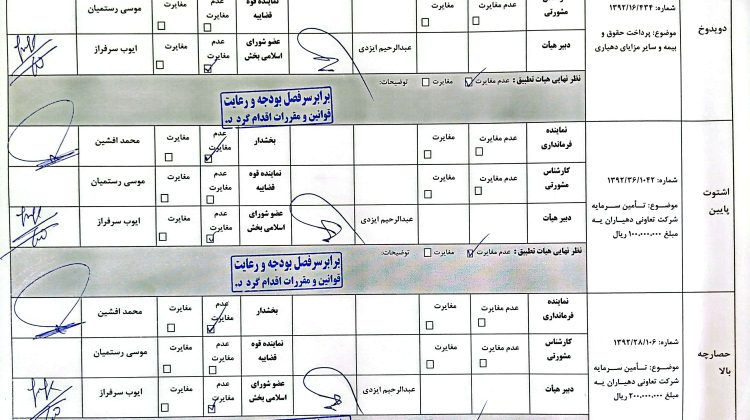 دویدوخ
شماره: ۱۳۹۲/۱۶/۴۳۴
موضوع: پرداخت حقوق و
بیمه و سایر مزایای دهیاری
کارشناس
مشورتی
عدم مغایرت
مغایرت
نماینده قوه
قضاییه
عدم
مغایرت
مغایرت
موسی رستمیان
دبیر هیات
عبدالرحیم ایزدی
عضو شورای
اسلامی بخش
عدم
مغایرت
مغایرت
ایوب سرفراز
نظر نهایی هیات تطبیق: عدم مغایرت مغایرت توضیحات:
برابر سرفصل بودجه و رعایت
قوانین و مقررات اقدام گردد.
اشتوت
پایین
شماره: ۱۳۹۲/۳۶/۱۰۴۲
موضوع: تأمین سرمایه
شرکت تعاونی دهیاران به
مبلغ ۱۰۰.۰۰۰.۰۰۰ ریال
نماینده
فرمانداری
عدم مغایرت
مغایرت
بخشدار
عدم
مغایرت
مغایرت
محمد افشین
کارشناس
مشورتی
عدم مغایرت
مغایرت
نماینده قوه
قضاییه
عدم
مغایرت
مغایرت
موسی رستمیان
دبیر هیات
عبدالرحیم ایزدی
عضو شورای
اسلامی بخش
عدم
مغایرت
مغایرت
ایوب سرفراز
نظر نهایی هیات تطبیق: عدم مغایرت مغایرت توضیحات:
برابر سرفصل بودجه و رعایت
قوانین و مقررات اقدام گردد.
حصارچه
بالا
شماره: ۱۳۹۲/۲۸/۱۰۶
موضوع: تأمین سرمایه
شرکت تعاونی دهیاران به
مبلغ ۲۰۰.۰۰۰.۰۰۰ ریال
نماینده
فرمانداری
عدم مغایرت
مغایرت
بخشدار
عدم
مغایرت
مغایرت
محمد افشین
کارشناس
مشورتی
عدم مغایرت
مغایرت
نماینده قوه
قضاییه
عدم
مغایرت
مغایرت
موسی رستمیان
دبیر هیات
عبدالرحیم ایزدی
عضو شورای
اسلامی بخش
عدم
مغایرت
مغایرت
ایوب سرفراز